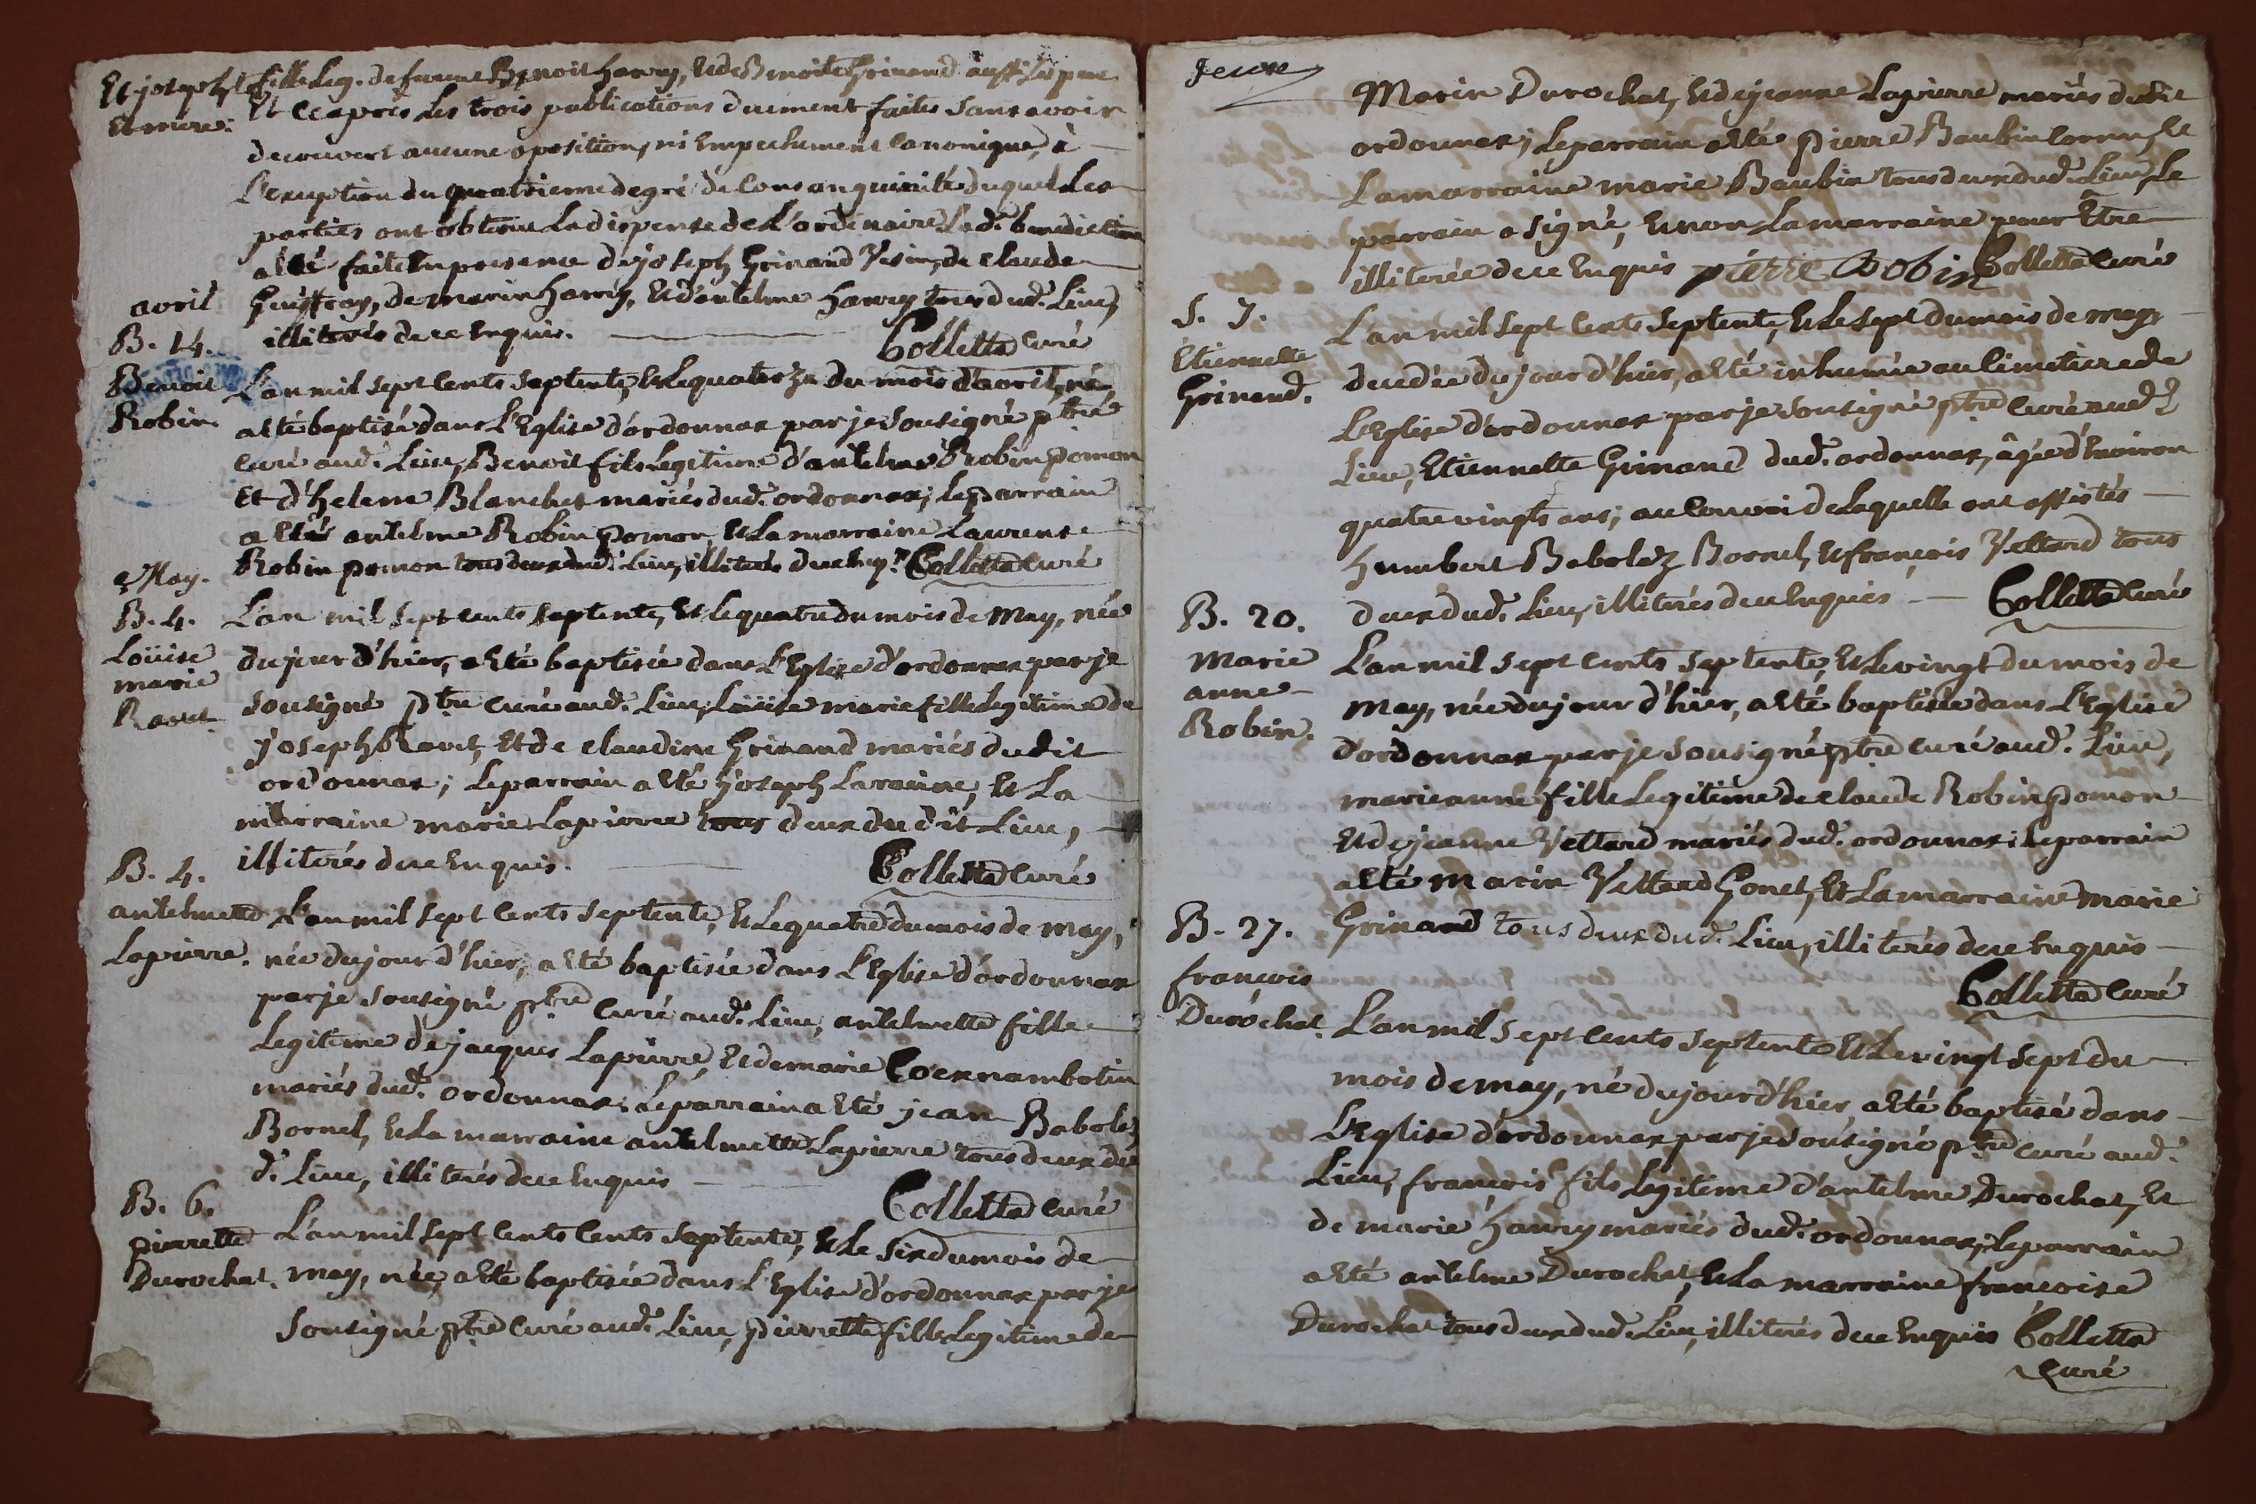 fille leg. de furent Benoit harry, et de Benoite Grinand aussi ses pere
Et joseph
et mere.
et ce après les trois publications duement faites sans avoir
decouvert aucune oposition, ni empechement canonique, à
l'exeption du quatrieme degré de consanguinité duquel les
parties ont obtenu la dispense de l'ordinaire. la d. benediction
a été faite en presence de joseph Grinand Vesin, de claude
Guiffray, de marin harry, et d'antelme harry tous dud. lieu,
illiterés de ce enquis. Colletta curé
avril
B. 14.
Benoit
Robin.
L'an mil sept cents septente, et le quatorze du mois d'avril, né
a été baptisé dans l'Eglise d'ordonnax par je sousigné ptre
curé aud. lieu, Benoit fils legitime d'antelme Robin pomon
et d'helene Blanchet mariés dud. ordonnax; le parrain
a été antelme Robin pomon, et la marraine Laurense
Robin pomon tous deux dud. lieu, illiterés de ce enq.s Colletta curé
May.
B. 4.
Loüise
marie
Ravet
L'an mil sept cents septente, et le quatre du mois de May, née
du jour d'hier, a été baptisée dans l'Eglise d'ordonnax par je
sousigné ptre curé aud. lieu, Loüise marie fille legitime de
joseph Ravet, et de claudine Grinand mariés dudit
ordonnax; le parrain a été joseph Laraine, et la
marraine marie Lapierre tous deux du dit lieu,
illiterés de ce enquis. Colletta curé
B. 4.
antelmette
Lapierre.
L'an mil sept cents septente, et le quatre du mois de may,
née du jour d'hier, a été baptisée dans l'Eglise d'ordonnax
par je sousigné ptre curé aud. lieu, antelmette fille
legitime de jacques Lapierre, et de marie Coernambotin
mariés dud. ordonnax; le parrain a été jean Babolez
Bornel, et la marraine antelmette Lapierre tous deux du
d. lieu, illiterés de ce enquis Colletta curé
B. 6.
pierrette
Durochat.
L'an mil sept cents cents septente, et le six du mois de
may, née, a été baptisée dans l'Eglise d'ordonnax par je
sousigné ptre curé aud. lieu, pierrette fille legitime de
Marin Durochat, et de jeanne Lapierre mariés dudit
ordonnax; le parrain a été pierre Baubin et
la marraine marie Baubin tous deux dud. lieu, le
parrain a signé, et non la marraine pour être
illiterée de ce enquis pierre Bobin Colletta curé
S. 7.
Etiennette
Grinand.
L'an mil sept cents septente, et le sept du mois de may
decedée du jour d'hier, a été inhumée au cimetiere de
l'Eglise d'ordonnax par je sousigné ptre curé aud.
lieu, Etiennette Grinand dud. ordonnax, âgée d'environ
quatre vingts ans; au convoi de laquelle ont assistés
humbert Babolez Bornel, et françois Vettard tous
deux dud. lieu, illiterés de ce enquis Colletta curé
B. 20.
Marie
anne
Robin.
L'an mil sept cents septente, et le vingt du mois de
may, née du jour d'hier, a été baptisée dans l'Eglise
d'ordonnax par je sousigné ptre curé aud. lieu,
marie anne fille legitime de claude Robin pomon
et de jeanne Vettard mariés dud. ordonnax; le parrain
a été marin Vettard Gonet, et la marraine marie
Grinand tous deux dud. lieu, illiterés de ce enquis
Colletta curé
B. 27.
francois
Durochat.
L'an mil sept cents septente et le vingt sept du
mois de may, né du jour d'hier a été baptisé dans
l'Eglise d'ordonnax par je sousigné ptre curé aud.
lieu, francois fils legitime d'antelme Durochat, et
de marie harry mariés dud. ordonnax; le parrain
a été antelme Durochat, et la marraine françoise
Durochat tous deux dud. lieu, illiterés de ce enquis Colletta
curé